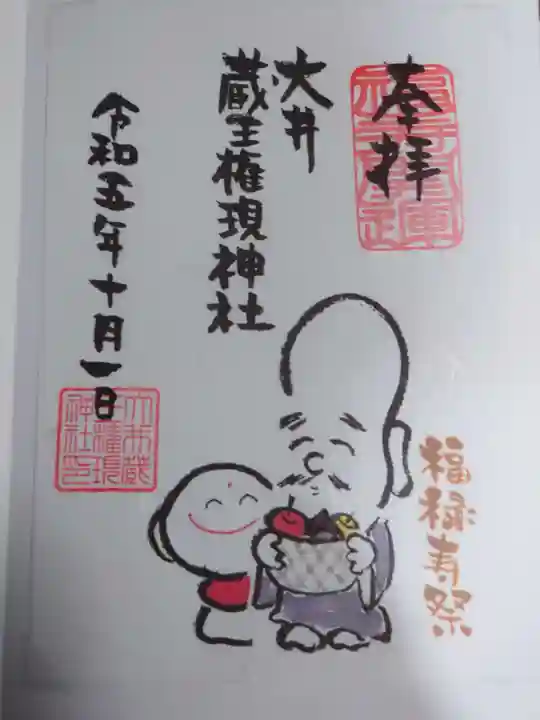 奉拝
大井
蔵王権現神社
令和五年十月一日
福禄寿祭
大井蔵
王権現
神社印